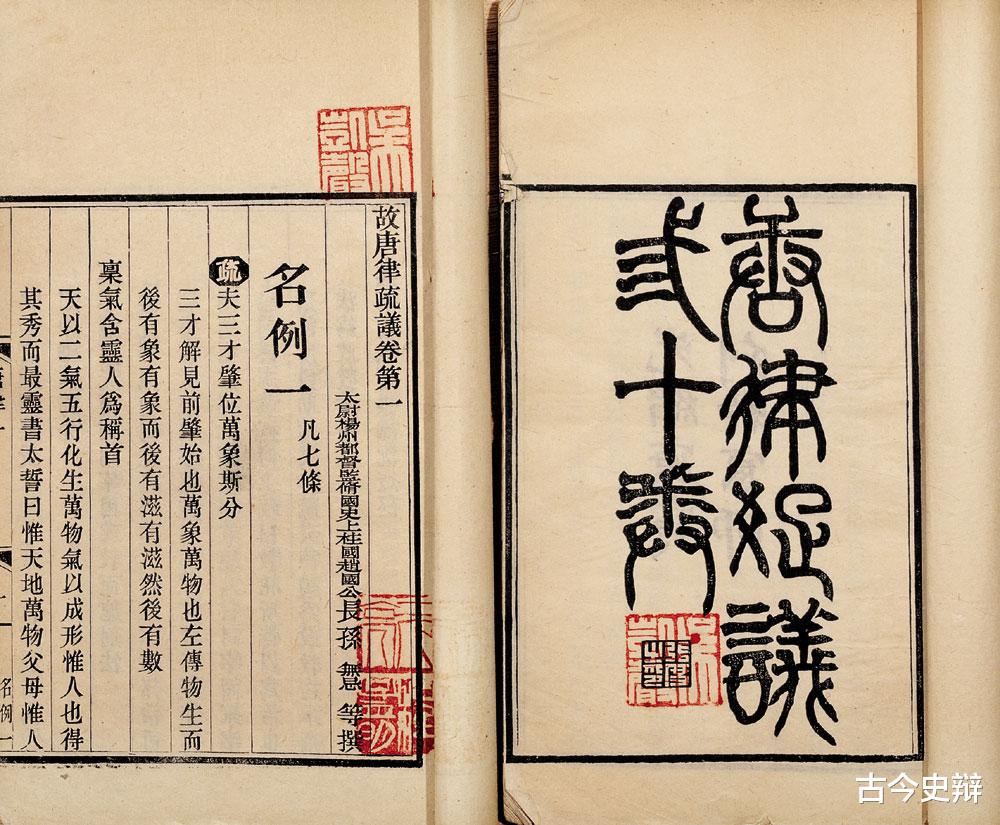 唐律疏議
弎十卷
吳凱聲
故唐律疏議卷第一
太尉楊州都督監脩國史上柱國趙國公長孫無忌等撰
名例一 凡七條
疏夫三才肇位萬象斯分
三才解見前肇始也萬象萬物也左傳物生而
後有象有象而後有滋有滋然後有數
稟氣含靈人爲稱首
天以二氣五行化生萬物氣以成形惟人也得
其秀而最靈書太誓曰惟天地萬物父母惟人
名例一
吳凱聲
古今史辩